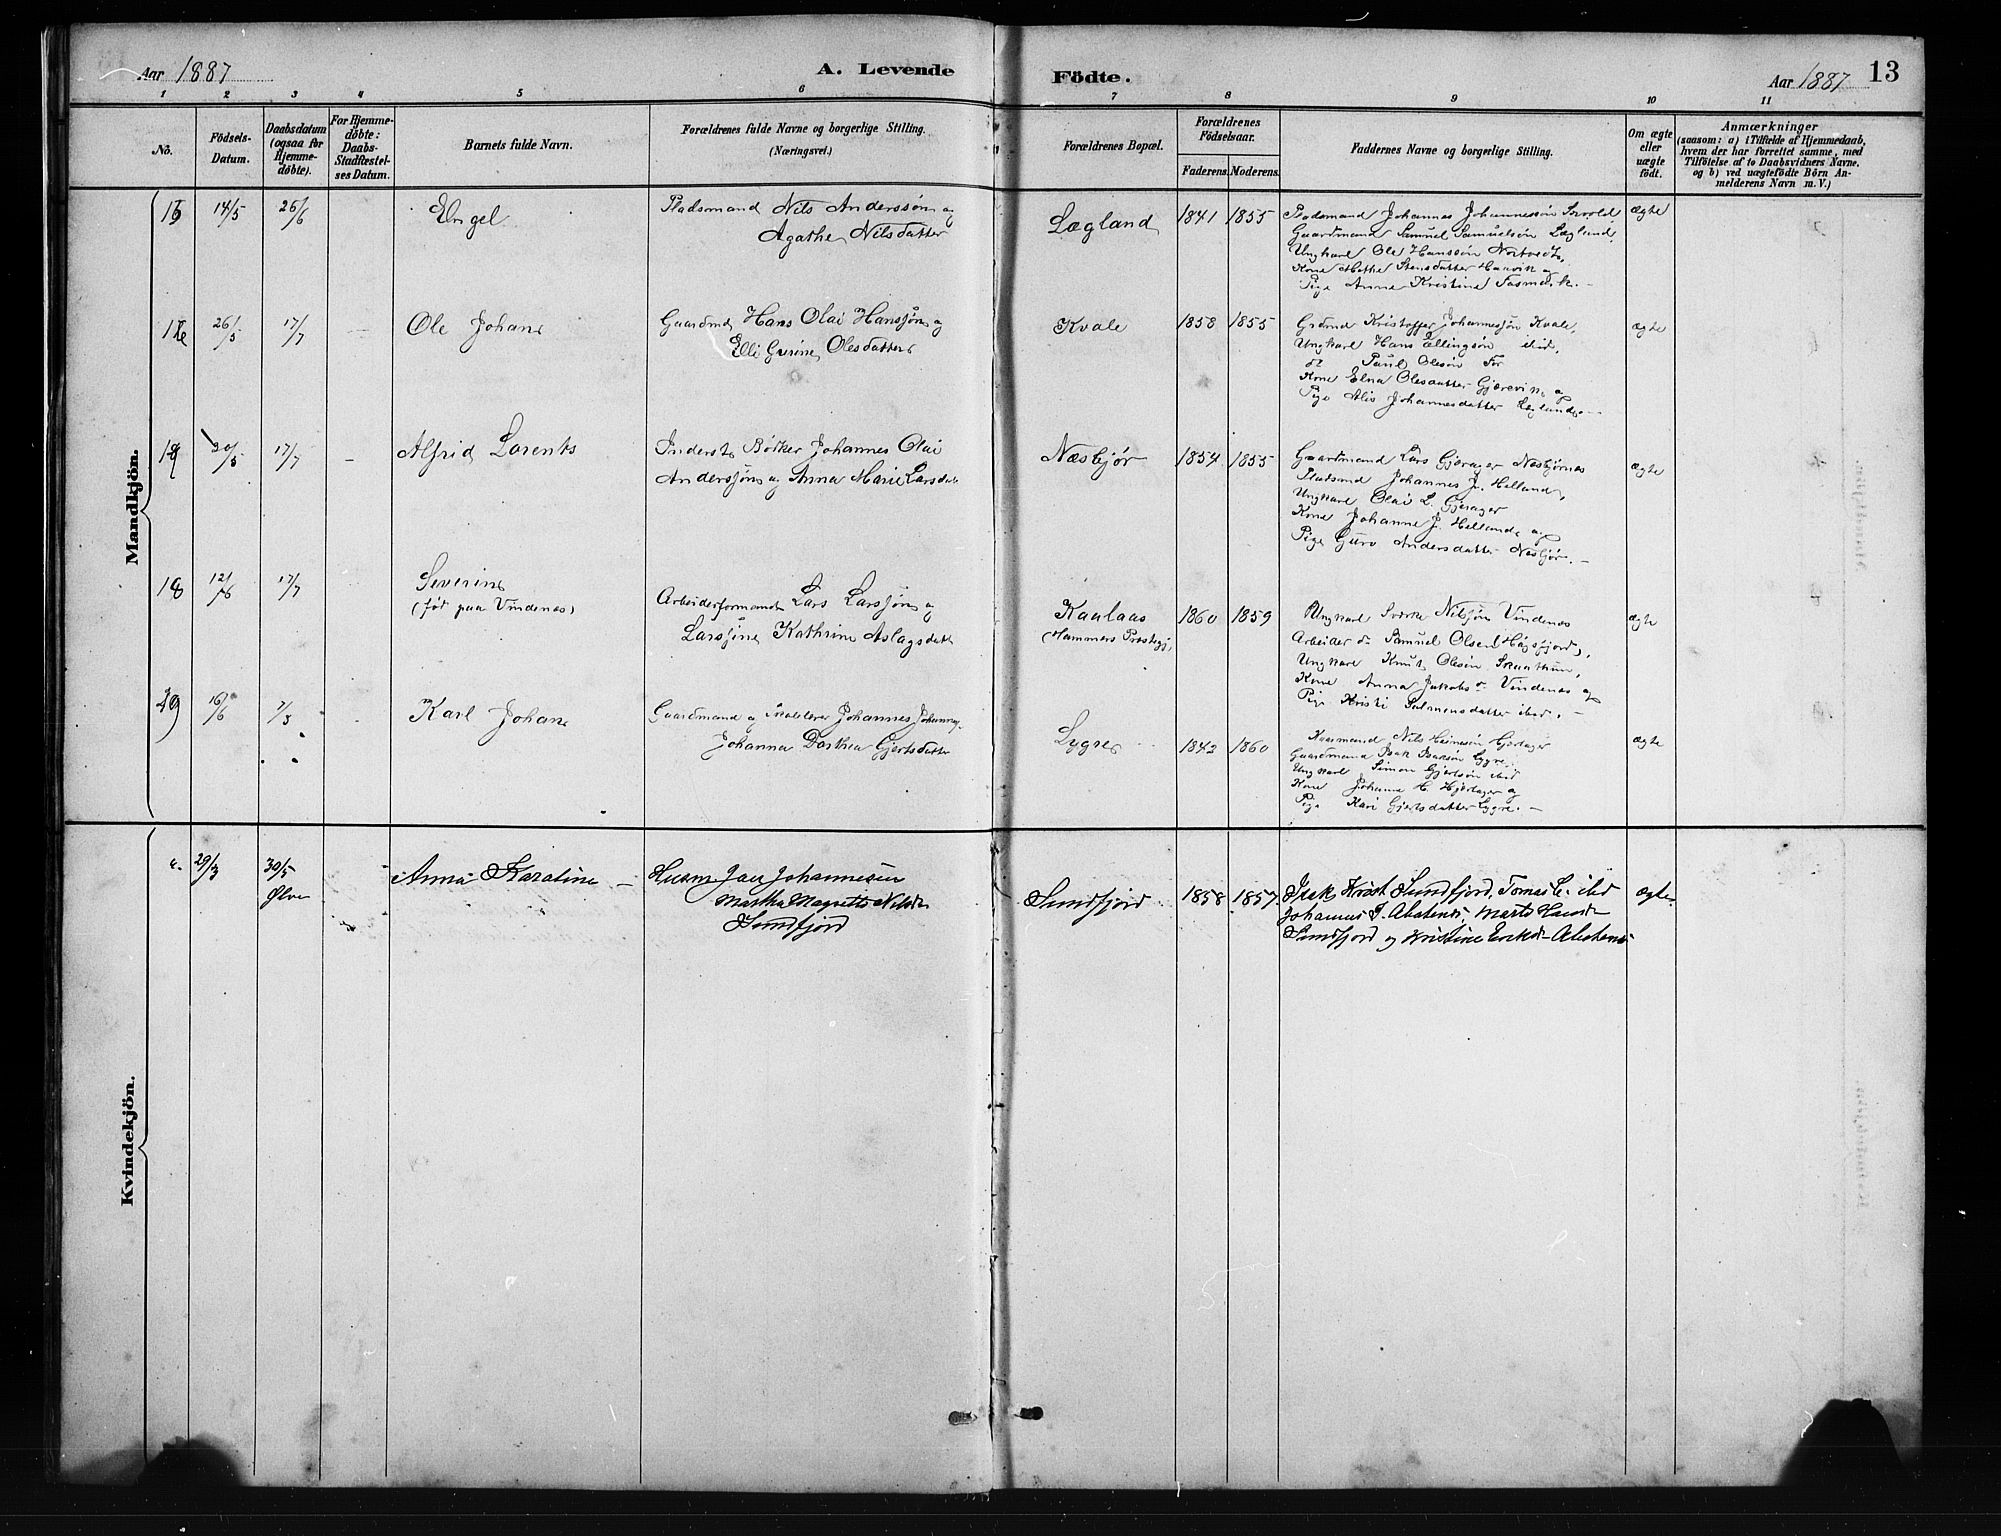 Aar 1887
A. Levende
Födte.
Aar 1887
13
1 2 3 4 5 6 7 8 9 10 11
No.
Födsels-
Datum.
Daabsdatum
(ogsaa for
Hjemme-
døbte).
For Hjemme-
döbte:
Daabs-
Stadfæstel-
ses Datum.
Barnets fulde Navn.
Forældrenes fulde Navne og borgerlige Stilling.
(Næringsvei.)
Forældrenes Bopæl.
Forældrenes
Födselsaar.
Faderens. Moderens.
Faddernes Navne og borgerlige Stilling.
Om ægte
eller
uægte
födt.
Anmærkninger
(saasom: a) i Tilfælde af Hjemmedaab,
hvem der har forrettet samme, med
Tilföielse af to Daabsvidners Navne,
og b) ved uægtefödte Börn An-
melderens Navn m. V.)
Mandkjön.
14/5
26/6
Engel
Pladsmand Nils Anderssön og
Agathe Nilsdatter
Lægland
1841 1855
Pladsmand Johannes Johannessön
Gaardmand Samuel Samuelsön Lægland,
Ungkarl Ole Hanssön Nortvedt,
Kone Stensdatter Haavik og
Pige Anna Kristina
ægte
26/5
17/7
Ole Johan
Gaardmd Hans Olai Hanssön og
Elli Gurine Olesdatter
Kvale
1858 1855
Kristoffer Johannessön Kvale,
Ungkarl Hans Ellingsön ibid,
Paul Olesön
Kone Elna Olesdatter Gjerevik og
Pige Alis Johannesdatter Lægland
ægte
30/5
17/7
Alfrid Lorents
Inderst Bötker Johannes Olai
Anderssön og Anna Marie Larsdatt
Næsbjør
1854 1855
Gaardmand Lars Gjerager Nesbjørnes
Pladsmd Johannes J. Helland,
Ungkarl Olai L. Gjerager
Kone Johanne J. Helland og
Pige Guro Andersdatter Nesbjør. –
ægte
18
12/6
17/7
Severin
(föd paa Vindenas)
Arbeiderformand Lars Larssön og
Kathrine Aslagsdatt
Kaalaas
(Hammers Prestegj.
1860 1859
Ungkarl Nilssön Vindenas
Arbeider Samuel Olsen (Høgsfjord),
Ungkarl Knut Olesön
Kone Anna Jakobs Vindenas og
Pige Kristi Salmonsdatter ibid. –
ægte
16/6
Karl Johan
Gaardmand og Johannes
Johanna Dorthea Gjertsdatter
Lygre
1842 1860
Nils Hjertager
Gaardmand Isak Isaksön Lygre,
Ungkarl Simon Gjertsön ibid
Kone Johanne H. Hjertager og
Pige Kari Gjertsdatter Lygre. –
ægte
Kvindekjön.
29/3
30/5
Ølve
Anna Karoline
Husm Johannesen
Martha Magrette Nilsdr
Sundfjord
Sundfjord
1858 1857
Isak Sundfjord, Tomas ibid
Johannes
Sundfjord og Kristine
ægte